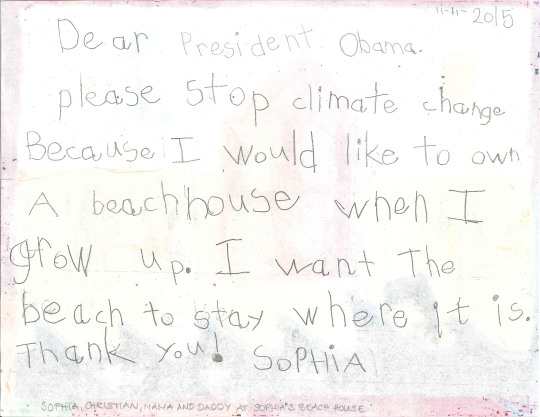 11-11-2015
Dear President Obama.
please stop climate change
Because I would like to own
A beachhouse when I
grow up. I want The
beach to stay where it is.
Thank you! SoPHiA
SOPHIA, CHRISTIAN, MAMA AND DADDY AT SOPHIA'S BEACH HOUSE